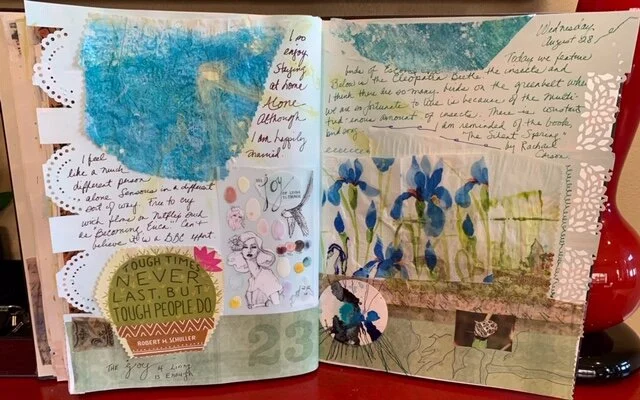 I do
enjoy
staying
at home
Alone
although
I am happily
married.
I feel
like a much
different person
alone Sensorus in a different
sort of way. Free to cry
with films on Netflix such
as "Becoming
believe it is a BBC
THE JOY
OF LIVING
IS ENOUGH
TOUGH TIMES
NEVER
LAST, BUT
TOUGH PEOPLE DO
ROBERT H. SCHULLER
The Joy of Living
is Enough
23
Wednesday,
August 28
Today we feature
birds of
Below is the Cleopatra Beetle the insects and
I think there are so many birds on the greenbelt where
we are so fortunate to live is because of the multi-
tudinous amount of insects. There is constant
bird song. I am reminded of the book,
"The Silent Spring"
by Rachael
Carson.